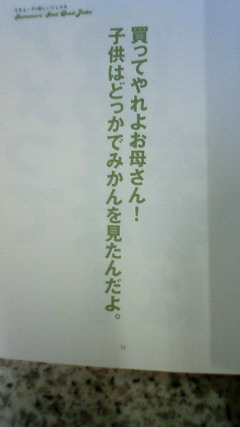 買ってやれよお母さん！
子供はどっかでみかんを見たんだよ。